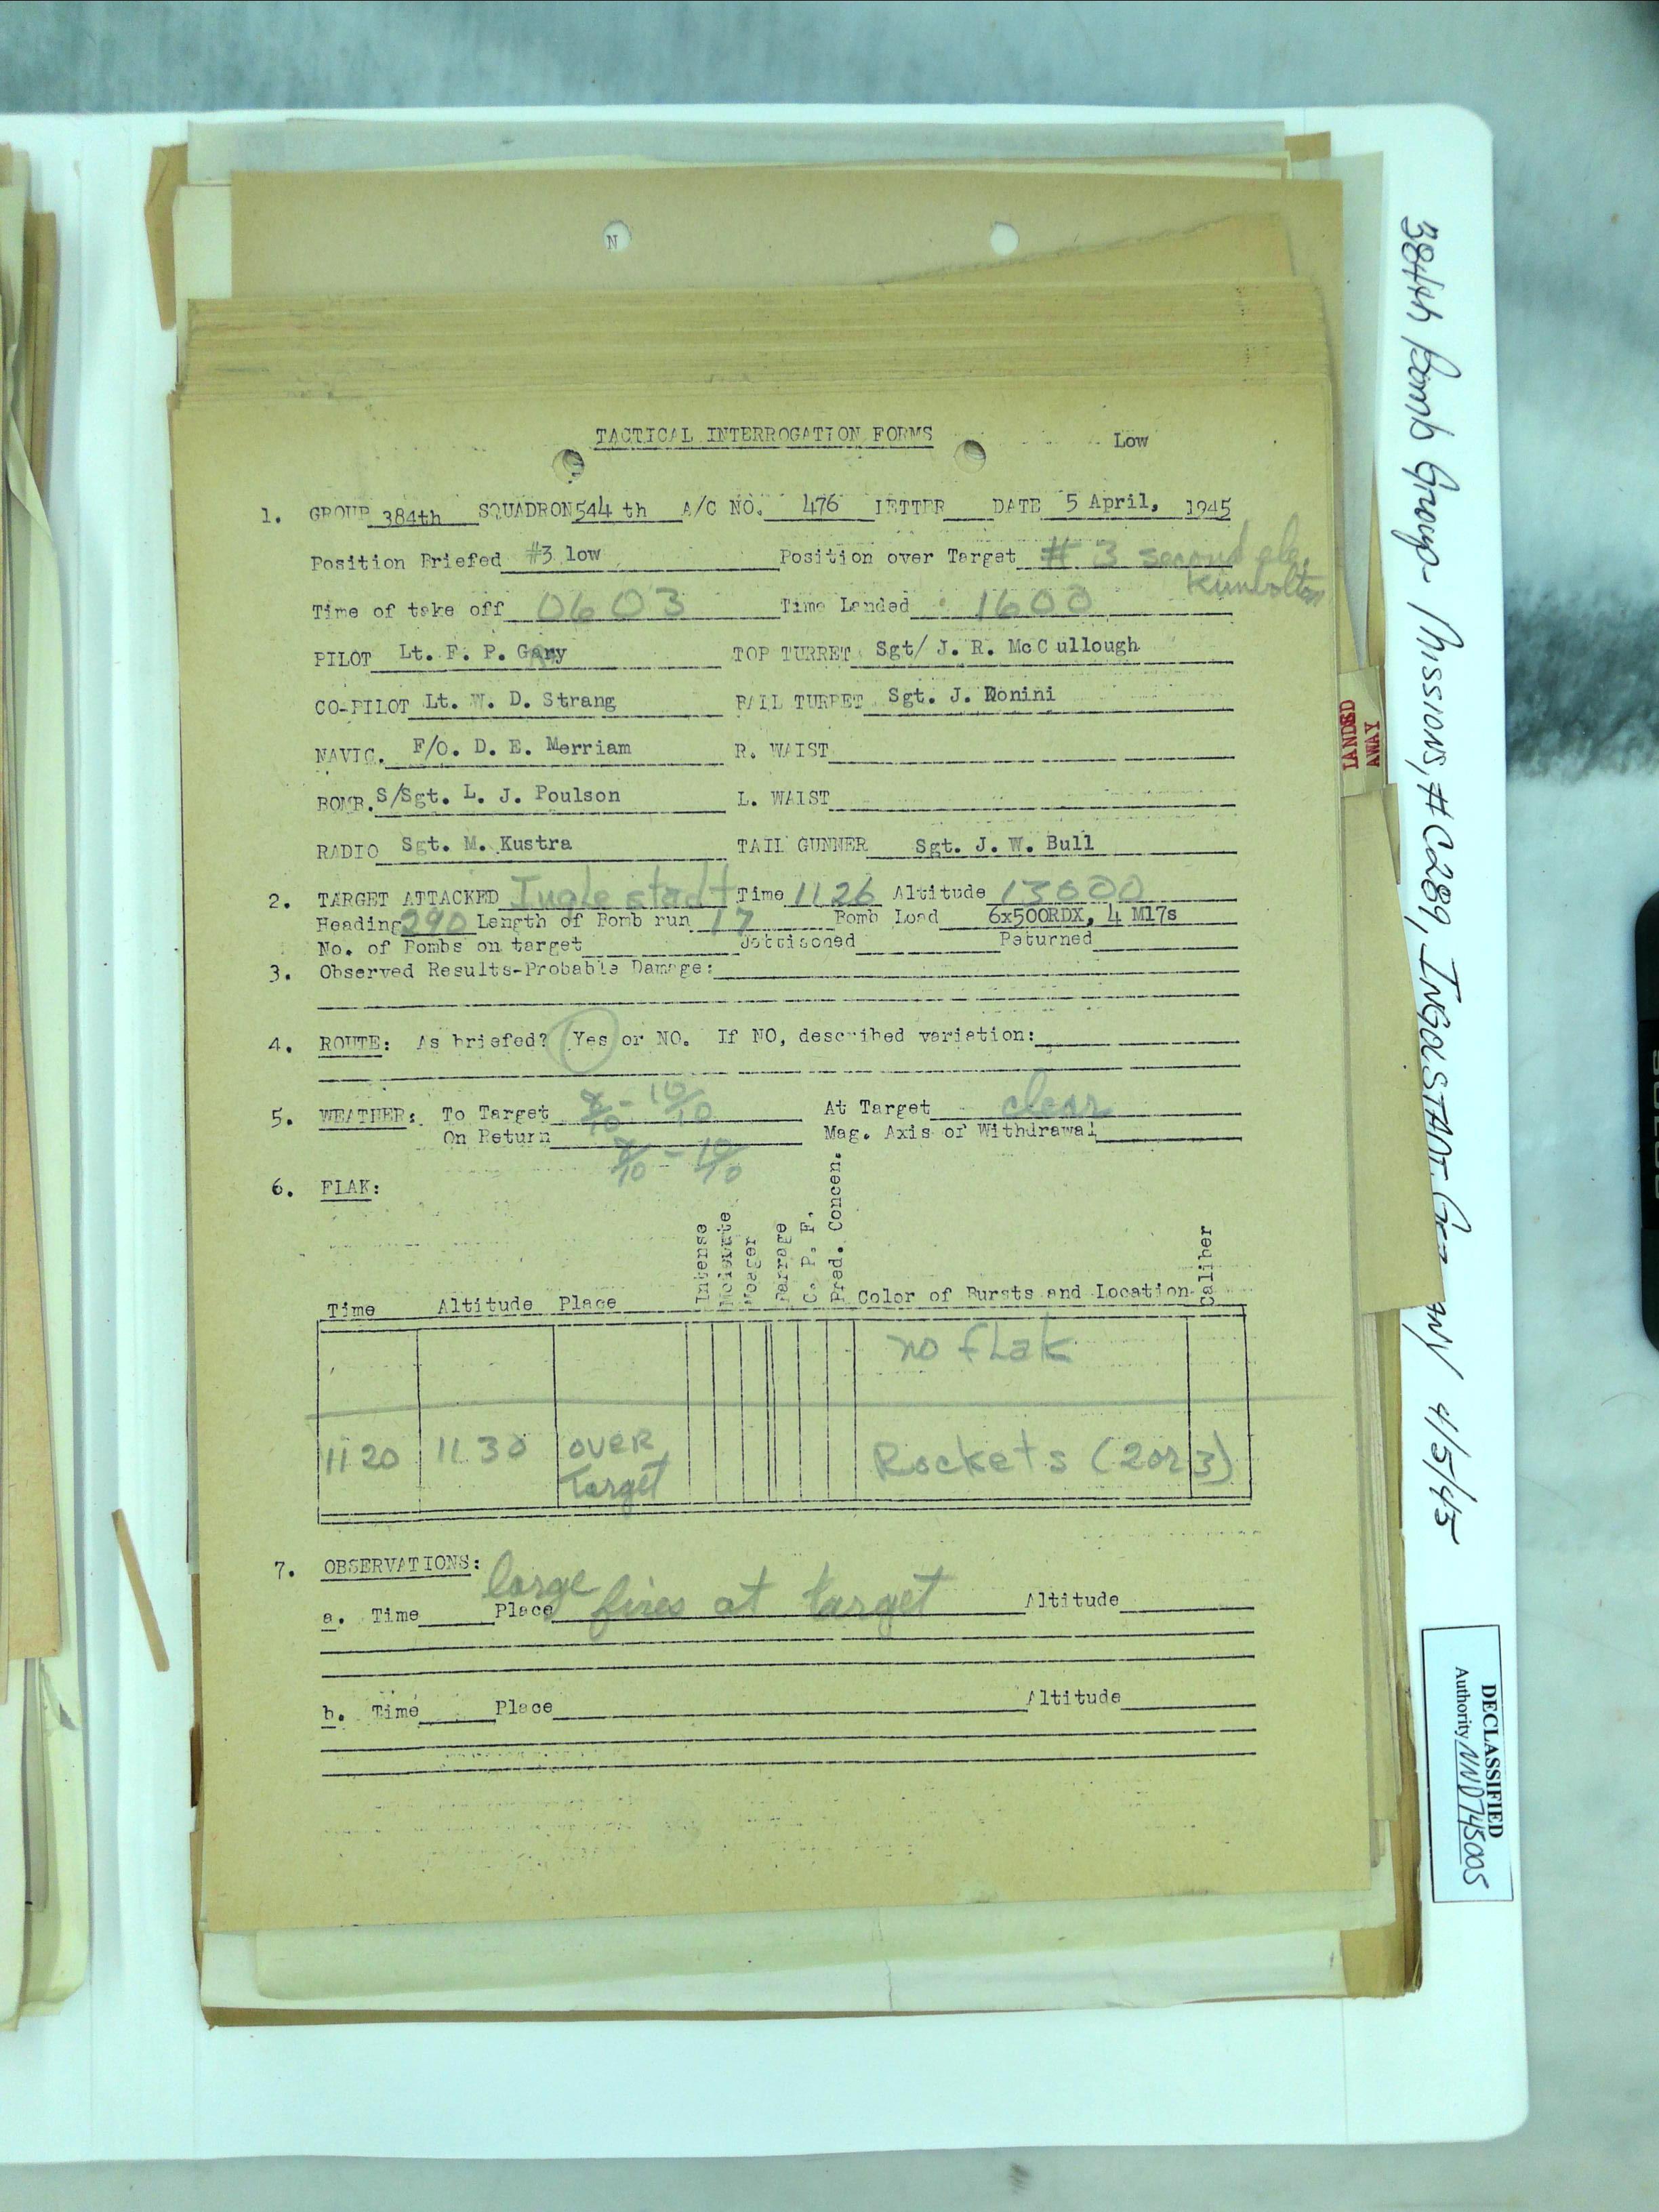 N
TACTICAL INTERROGATION FORMS Low
1. GROUP 384th SQUADRON 544 th A/C NO. 476 LETTER DATE 5 April, 1945
Position Briefed #3 low Position over Target # 3 second ele.
Kimbolton
Time of take off 0603 Time Landed 1600
PILOT Lt. F. P. Gary TOP TURRET Sgt/ J. R. McCullough
CO-PILOT Lt. W. D. Strang BALL TURRET Sgt. J. Donini
NAVIG. F/O. D. E. Merriam R. WAIST
BOMB. S/Sgt. L. J. Poulson L. WAIST
RADIO Sgt. M. Kustra TAIL GUNNER Sgt. J. W. Bull
2. TARGET ATTACKED Inglestadt Time 1126 Altitude 13000
Heading 290 Length of Bomb run 17 Bomb Load 6x500RDX, 4 M17s
No. of Bombs on target Jettisoned Returned
3. Observed Results-Probable Damage:
4. ROUTE: As briefed? Yes or NO. If NO, described variation:
5. WEATHER: To Target 8/10 - 10/10 At Target clear
On Return 8/10 - 10/10 Mag. Axis of Withdrawal
6. FLAK:
Time Altitude Place Intense Moderate Meager Barrage C. P. F. Pred. Concen. Color of Bursts and Location Caliber
no flak
1120 1130 over Target Rockets (2 or 3)
7. OBSERVATIONS:
a. Time Place large fires at target Altitude
b. Time Place Altitude
LANDED
AWAY
384th Bomb Group - Missions, # 0289, INGOLSTADT, 4/5/45
DECLASSIFIED
Authority NND 745005